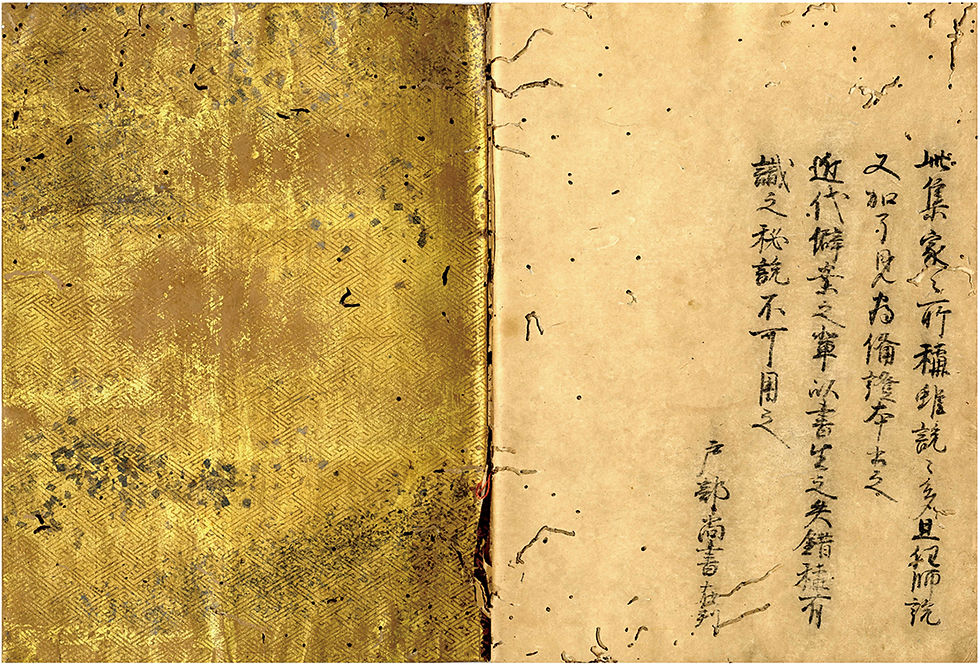 此集家々所稱雖説々多且任師説
又加了見為備證本書之
近代僻案之輩以書生之失錯稱有
識之秘説不可用之
戸部尚書在判